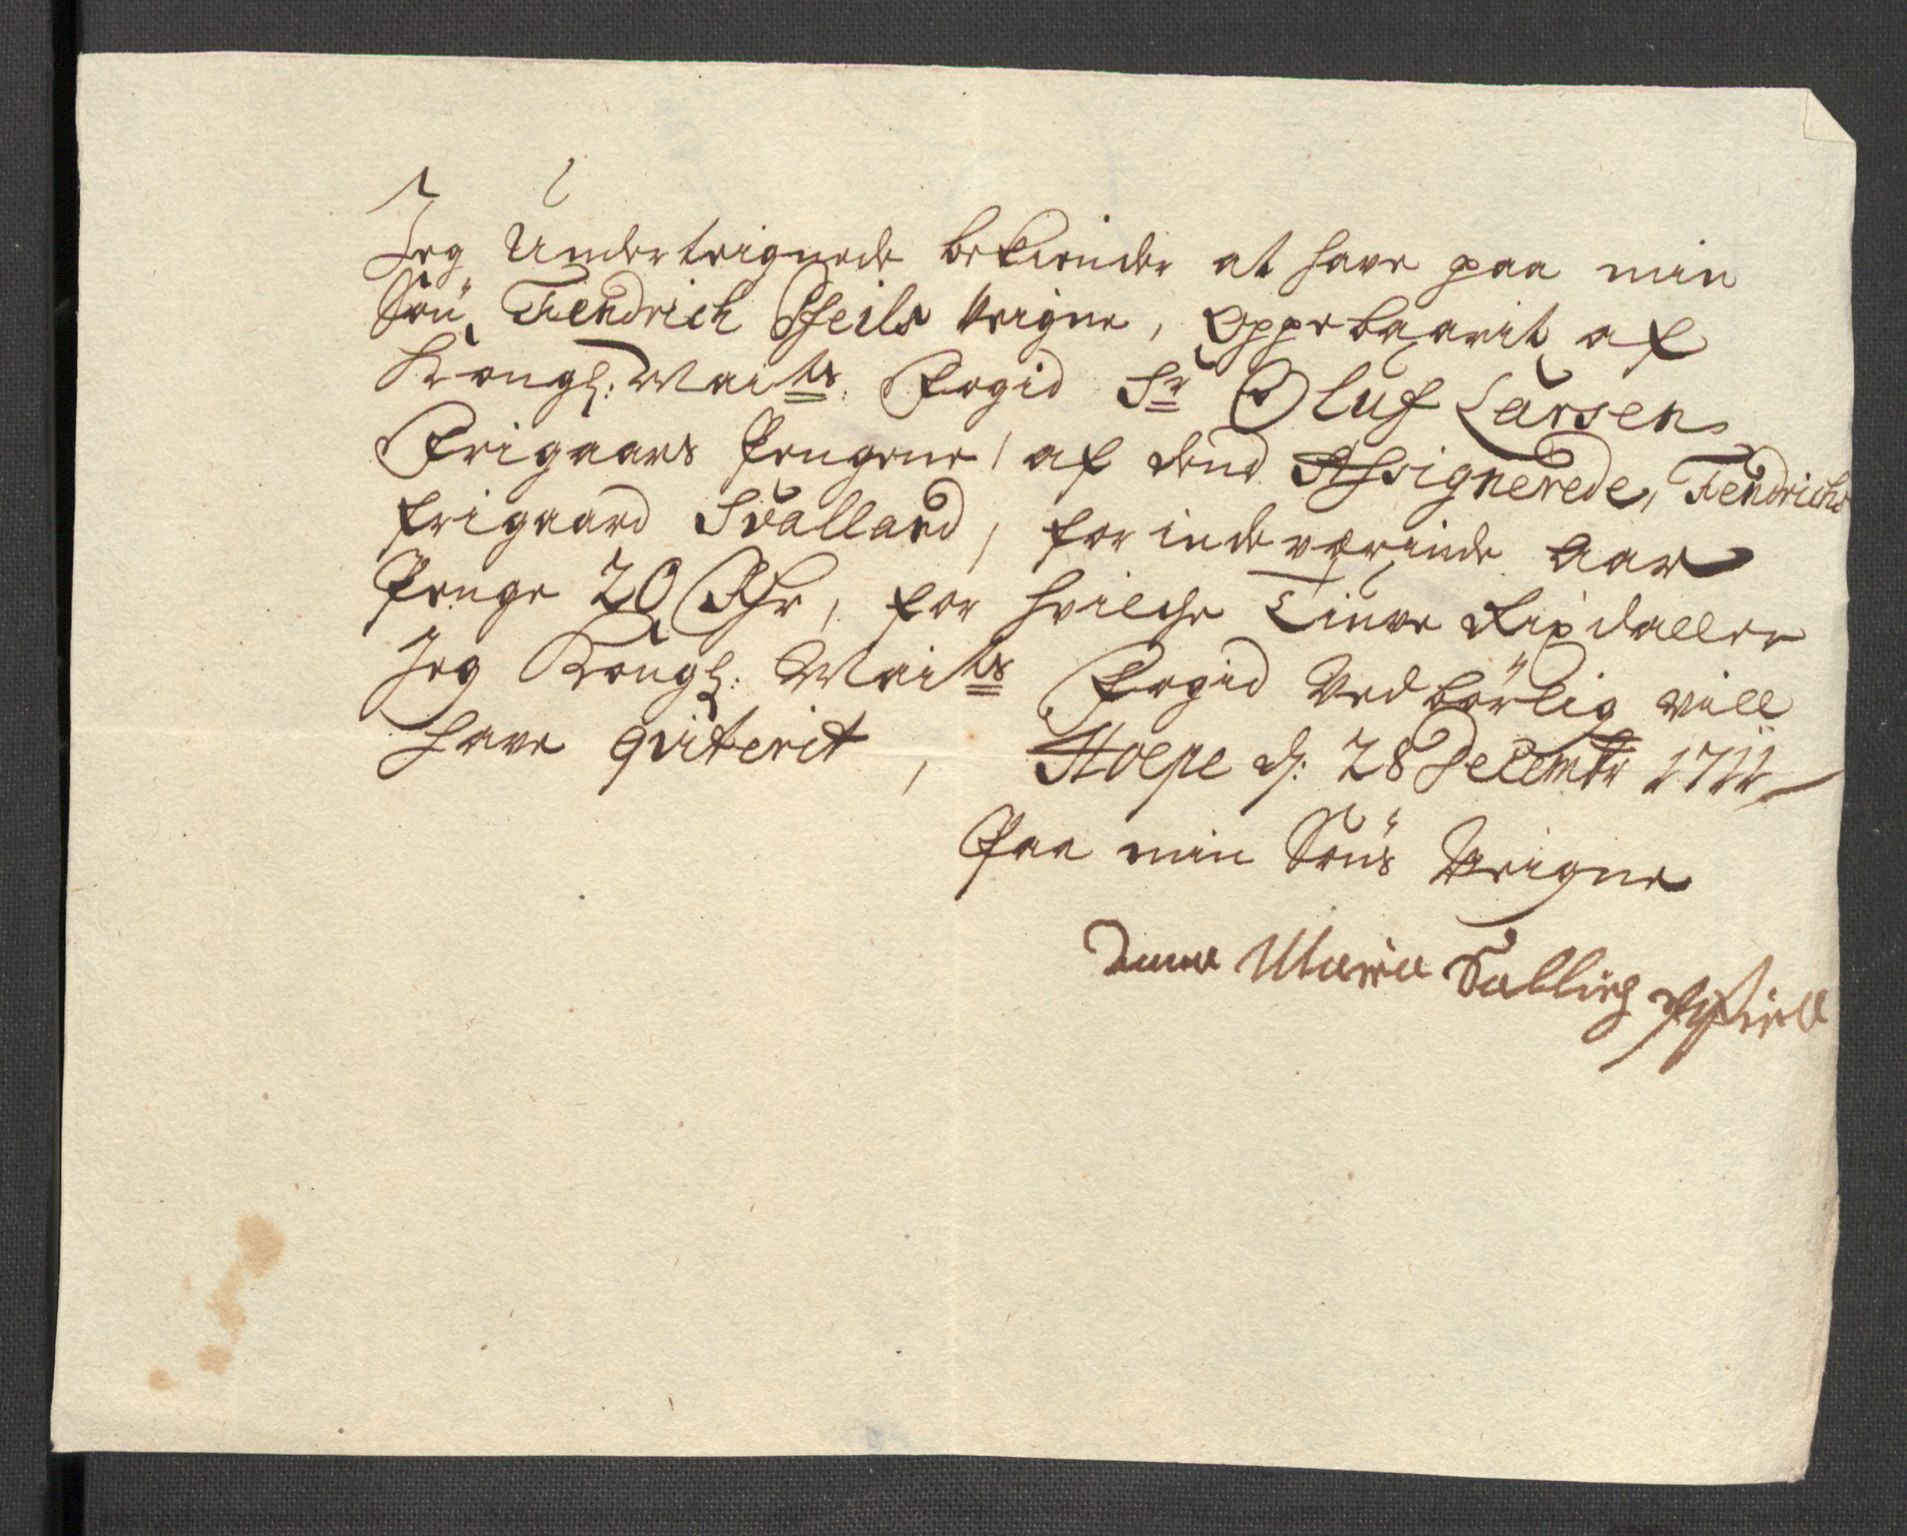 Jeg Underteignede bekiender at have paa min
Sön, Fendrich Pfeils Veigne, Oppebaarit af
Kongl: Maits Fogid Sr Oluf Larsen
Frigaars Pengene, af dend Assignerede, Fendrichs
frigaard Svalland, for indeværinde Aar
Penge 20 Rdr, for hvilche Tiuve Rixdaller
Jeg Kongl: Maits Fogid Vedbörlig vill
have qviterit, Stoepe d: 28 Decembr 1711
Paa min Söns Veigne
Anna Maria Salling Pfeill